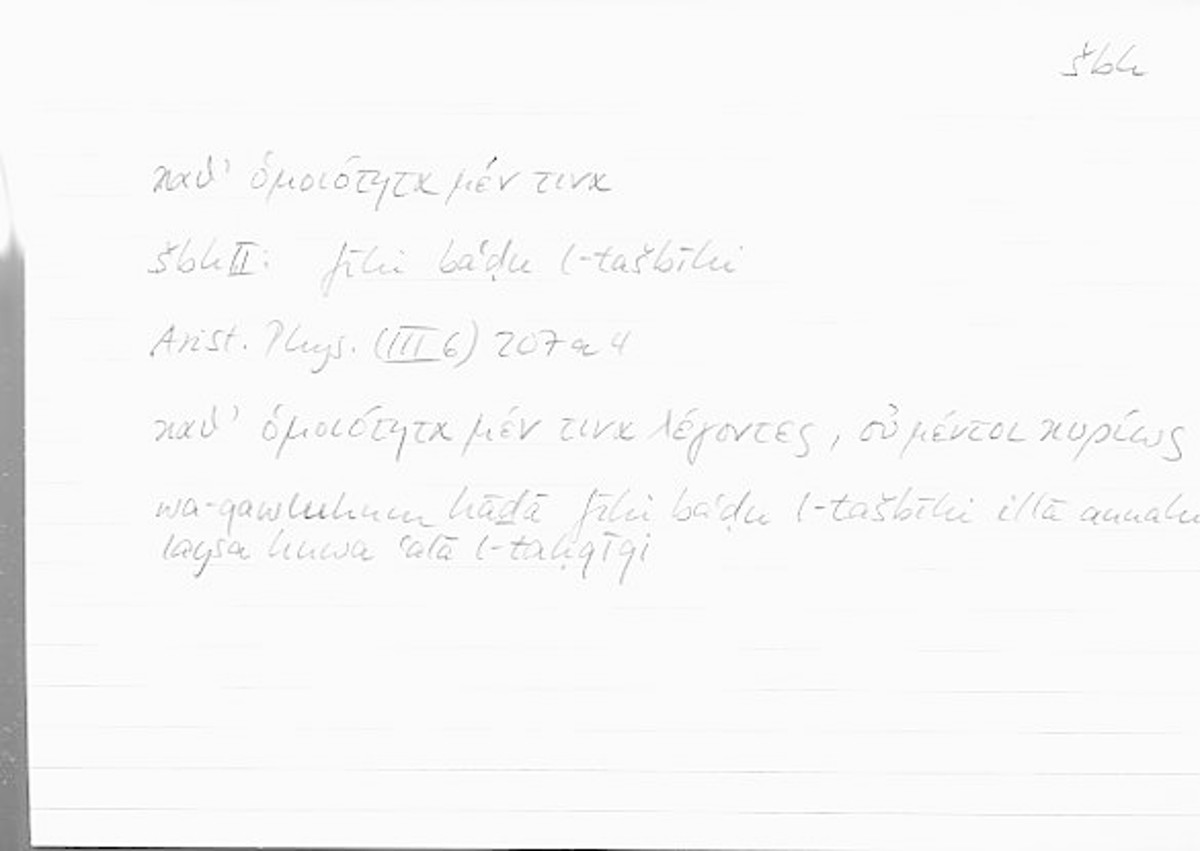 šbh
καθ' ὁμοιότητα μέν τινα
šbh II: fīhi baʿḍu l-tašbīhi
Arist. Phys. (III 6) 207 a 4
καθ' ὁμοιότητα μέν τινα λέγοντες, οὐ μέντοι κυρίως
wa-qawluhum hāḏā fīhi baʿḍu l-tašbīhi illā annahu
laysa huwa ʿalā l-taḥqīqi